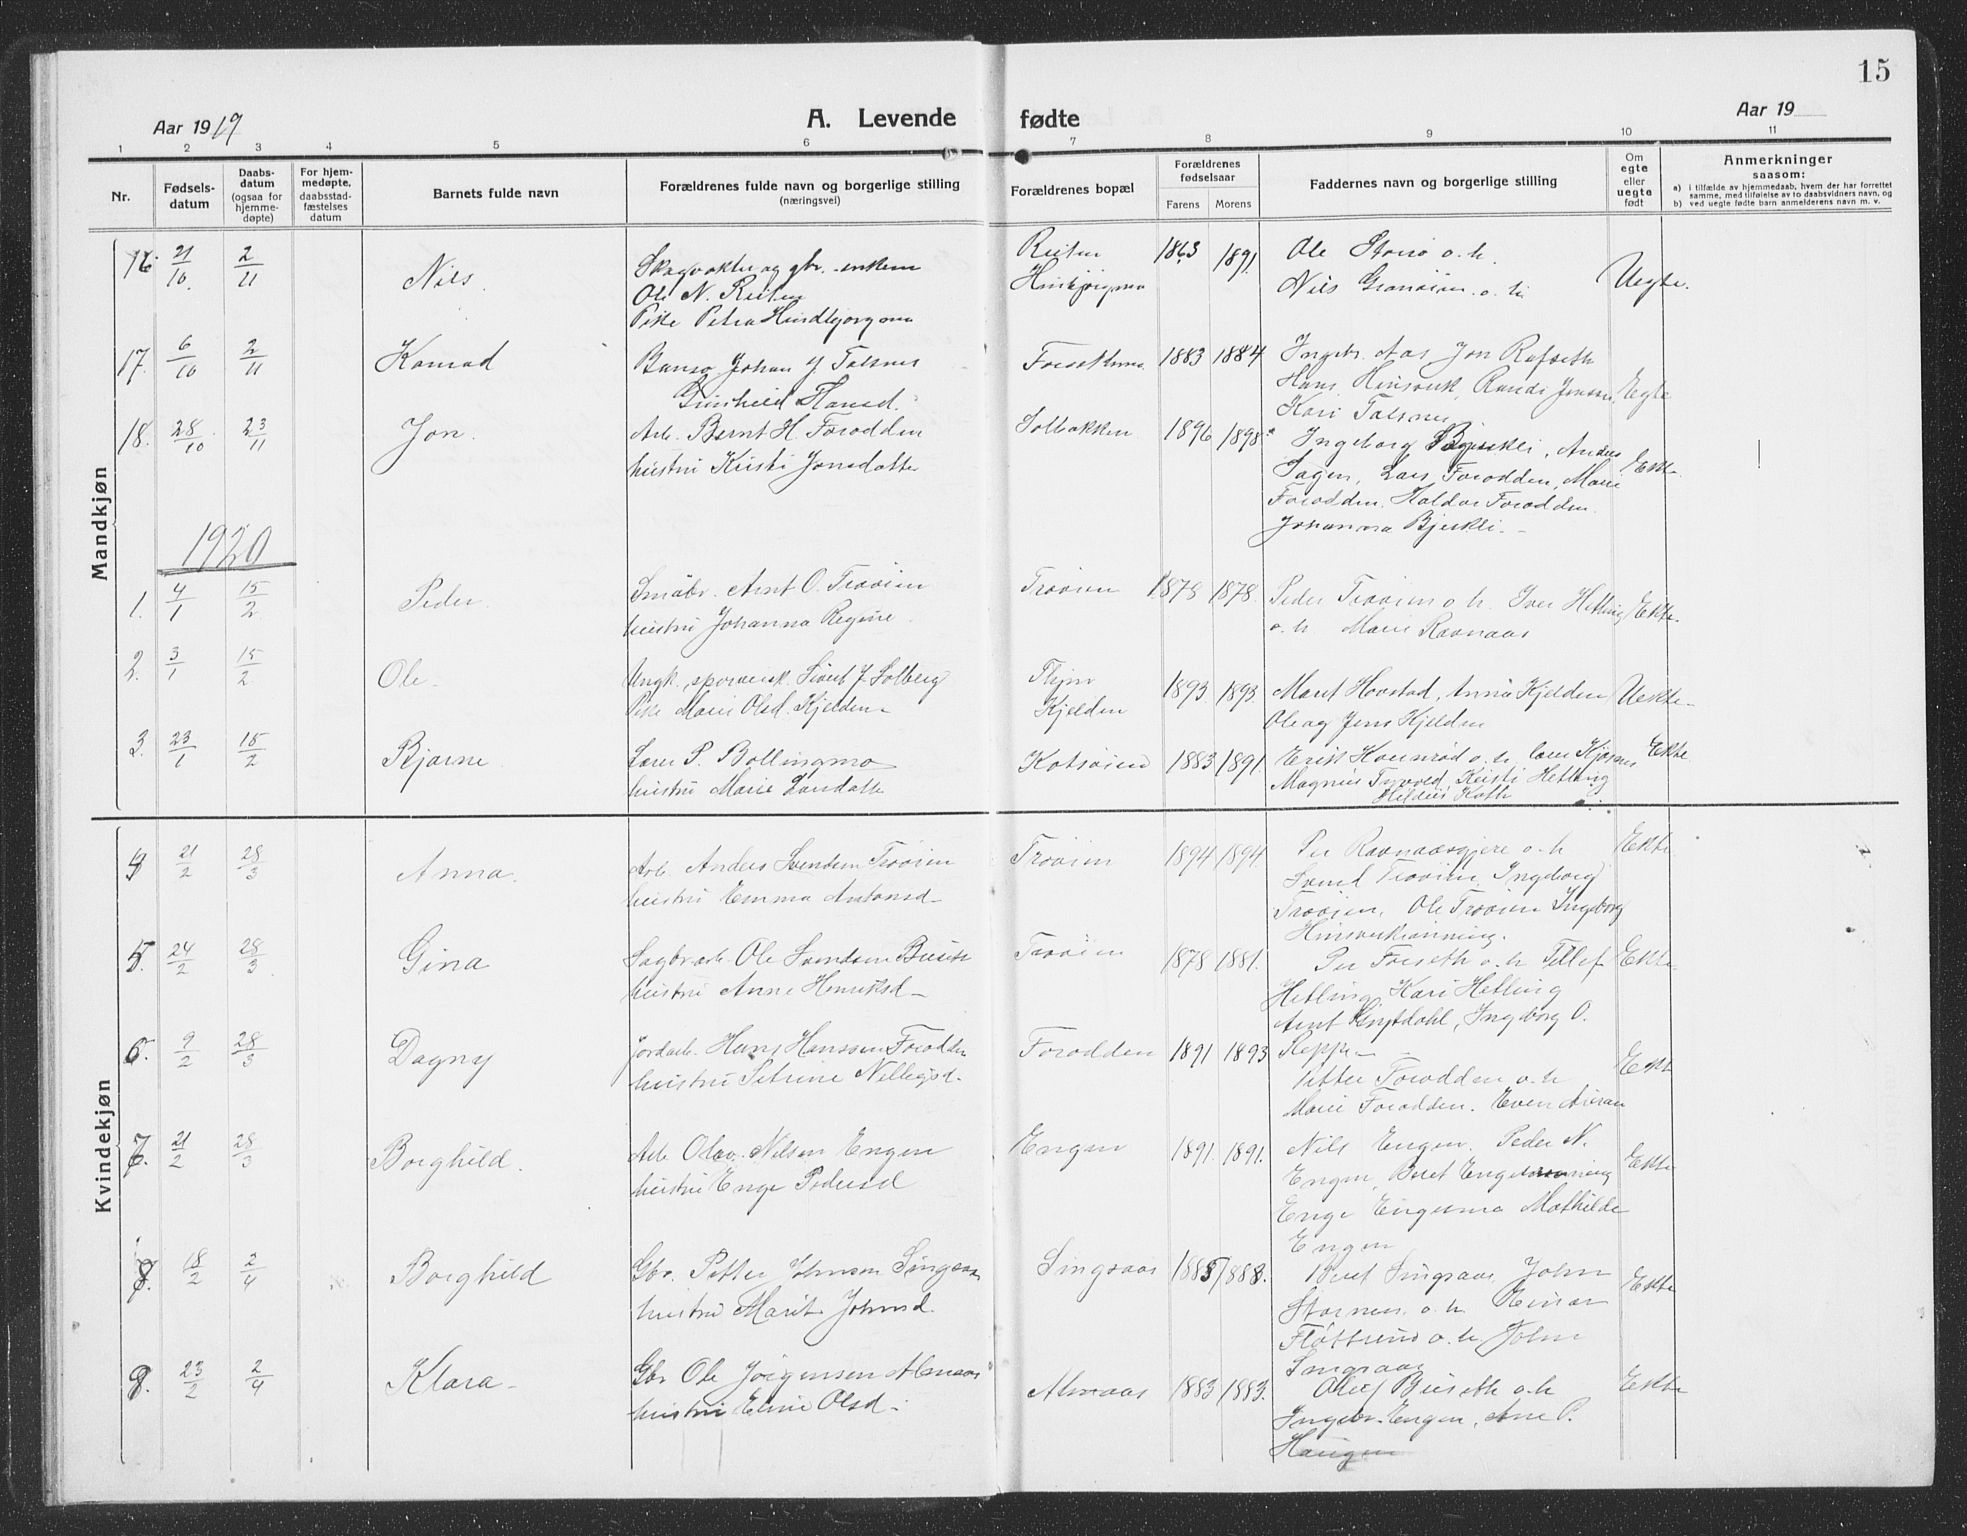 15
Aar 1919 A. Levende fødte Aar 19
1 2 3 4 5 6 7 8 9 10 11
Nr. Fødsels-datum Daabs-datum (ogsaa for hjemme-døpte) For hjem-medøpte, daabsstad-fæstelses datum Barnets fulde navn Forældrenes fulde navn og borgerlige stilling (næringsvei) Forældrenes bopæl Forældrenes fødselsaar Farens Morens Faddernes navn og borgerlige stilling Om egte eller uegte født Anmerkninger saasom: a) i tilfælde av hjemmedaab, hvem der har forrettet samme, med tilføielse av to daabsvidners navn, og b) ved uegte fødte barn anmelderens navn m. v.
Mandkjøn
16. 21/10. 2/11 Nils. Skogvokter og gbr. enkem Reiten 1863 1891. Ole Storrø o. h.
Ole N. Reiten Nils Granøien o. h. Uegte.
Pike Petra Hindbjørgmo
17. 6/10 2/11 Konrad Johan J. Talsnes 1883 1884. Ingebr. Aas Jon Rafseth
Gunhild Hansd. Hans Hinsverk, Randi Jensen Egte
Kari Talsnes
18. 28/10 23/11 Jon. Arb. Bernt H. Forodden Solbakken 1896 1898. Ingeborg Bjerkli, Anders
hustru Kristi Jonsdatter Sagen, Lars Forodden, Marie Ekte
Forodden, Haldor Forodden.
Johanna Bjerkli.
1920
1. 4/1 15/2 Peder. Småbr. Arnt O. Trøøien Trøøien 1878 1878. Peder Trøøien o. h. Iver Hetling Ekte.
hustru Johanna Regine o. h. Marie Ravnaas
2. 3/1 15/2. Ole. Ungk. sporveisk. Sivert J. Solberg 1893. 1893. Marit Hovstad, Anna Kjelden Uekte
Pike Marie Olsd. Kjelden Kjelden Ole og Jens Kjelden
3. 23/1 15/2 Bjarne. Lars P. Bollingmo Kotsøien 1883 1891. o. h. Ekte
hustru Marie Larsdatter Magnus Kristi Hetling
Kvindekjøn
4 21/2 28/3 Anna. Arb. Anders Svendsen Trøøien Trøøien 1894 1894. Per Ravnaasgjere o. h. Ekte
hustru Emma Antonsd. Svend Trøøien, Ingeborg
Trøøien, Ole Trøøien Ingeborg
5. 24/2 28/3 Gina Sagbr.arb. Ole Svendsen Buseth Trøøien 1878 1881. Per Forseth o. h. Tellef Ekte
hustru Anne Henriksd. Hetling, Kari Hetling
Arnt Ingeborg O.
Reppe
6. 9/2 28/3 Dagny Jordarb. Hans Hanssen Forodden Forodden 1891 1893 Petter Forodden o. h. Ekte
hustru Petrine Marie Forodden. Even
7. 21/2 28/3 Borghild. Arb. Olav Nilsen Engen Engen 1891. 1891. Nils Engen. Peder N. Ekte
hustru Enge Pedersd Engen, Beret
Enge Engesmo Mathilde
Engen
8. 18/2 2/4 Borghild Gbr. Petter Johnsen Singsaas Singsaas 1885 1888. Beret Singsaas, John Ekte
hustru Marit Johnsd. Storrnes o. h. Einar
o. h. John
Singsaas
9. 23/2 2/4 Klara Gbr Ole Jørgensen Almaas Almaas 1883 1883. Oluf Buseth o. h. Ekte
hustru Eline Olsd. Ingebr. Engen, Ane P.
Haugen